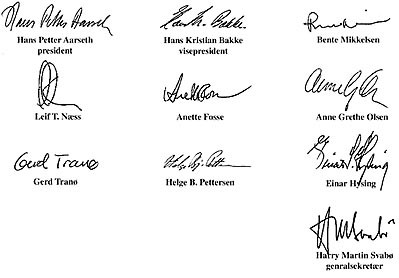 Hans Petter Aarseth
Hans Petter Aarseth
president
Hans Kr. Bakke
Hans Kristian Bakke
visepresident
Bente Mikkelsen
Leif T. Næss
Anette Fosse
Anne G Olsen
Anne Grethe Olsen
Gerd Tranø
Gerd Tranø
Helge B. Pettersen
Einar Hysing
Einar Hysing
HM Svabø
Harry Martin Svabø
genralsekretær